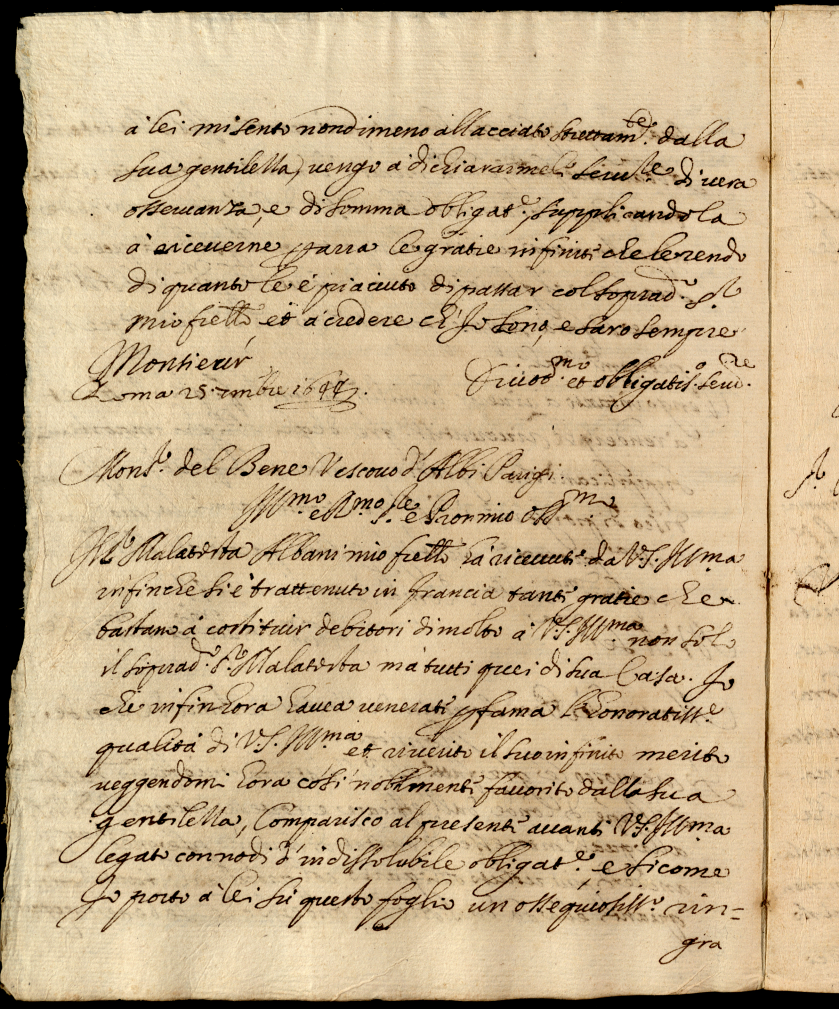 à lei mi sento nondimeno allacciato strettam.te dalla
sua gentilezza, vengo à dichiararmele serv.re di vera
osservanza, e di somma obligat.e, supplicandola
à riceverne parra le gratie infinite che le rendo
di quanto le è piaciuto di passar col soprad.o S.r
mio fr̃ello et à credere ch'Io sono, e sarò sempre
Monsieur Divot.mo et obligatis.o serv.re
Roma 25 9mbre
Mons.r del Bene Vescovo d'Albi Parigi
Ill.mo e R.mo S.re e Pron mio oss.mo
Il S.r Malatesta Albani mio fr̃ello hà ricevute da V.S. Ill.ma
infinche si è trattenuto in francia tante gratie che
bastano à costituir debitori di molto à V.S. Ill.ma non solo
il soprad.o S.r Malatesta mà tutti quei di sua Casa. Io
che infinhora havea venerate p fama l'honoratiss.e
qualità di V.S. Ill.ma et riverito il suo infinito merito
veggendomi hora così nobilmente favorito dalla sua
gentilezza, Comparisco al presente avanti V.S. Ill.ma
legato con nodi d'indissolubile obligat.e, e sicome
Io porto à lei sù questo foglio un ossequiosiss.o rin=
gra